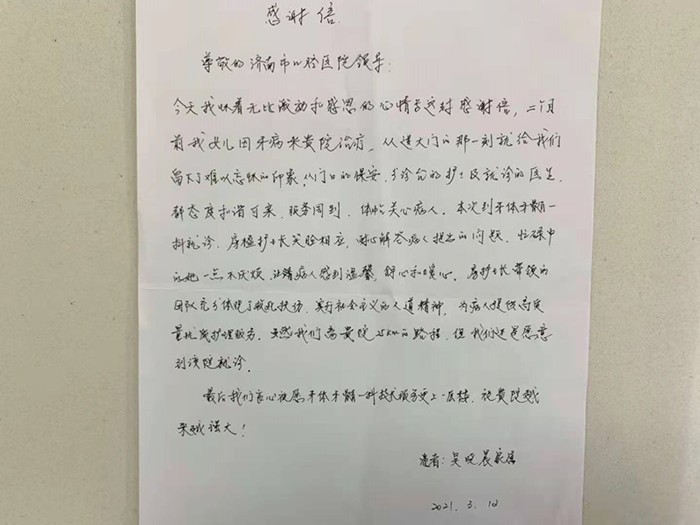 感谢信
尊敬的济南市口腔医院领导:
今天我怀着无比激动和感恩的心情写这封感谢信,二个月
前我女儿因牙病来贵院治疗,从进大门的那一刻就给我们
留下了难以忘怀的印象,从门口的保安、分诊台的护士及就诊的医生,
都态度和谐可亲,服务周到,体贴关心病人。本次到牙体牙髓一
科就诊,房楹护士长笑脸相应,耐心解答病人提出的问题,忙碌中
的她一点不厌烦,让病人感到温馨,舒心和暖心。房护士长带领的
团队充分体现了救死扶伤,实行社会主义的人道精神,为病人提供高质
量优质护理服务。虽然我们离贵院25km的路程,但我们还是愿意
到该院就诊。
最后我们衷心祝愿牙体牙髓一科技术服务更上一层楼,祝贵院越
来越强大!
患者:吴晓晨家属
2021.3.10